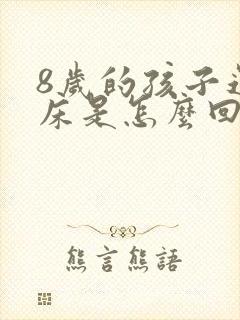 8歲的孩子
床是怎麼回
熊言熊語